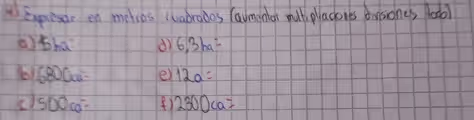 Expresar en metros cuadrados (aumentar multiplaciones divisiones todo)
a) 5ha= d) 6,3ha=
b) 680ca= e) 12a=
c) 500ca= f) 2300ca=